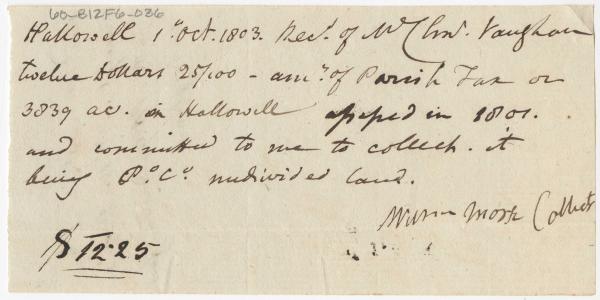 60-B12F6-036
Hallowell 1º Oct. 1803. Recd. of Mr Chs. Vaughan
twelve Dollars 25/100 - amt. of Parish Tax on
3839 ac. in Hallowell assessed in 1801.
and committed to me to collect. it
being Pº Cº undivided land.
Morse Collectr
$ 12.25